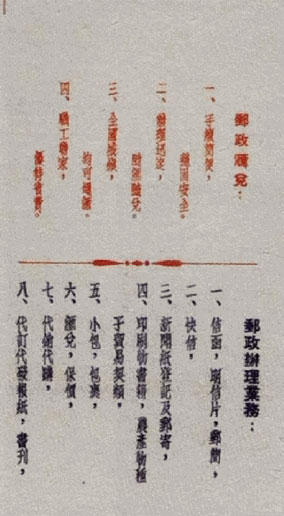 郵政滙兌：
一、手續簡便，
穩固安全。
二、辦理迅速，
隨滙隨兌。
三、全國城鄉，
均可通滙。
四、職工贍家，
優待省費。
郵政辦理業務：
一、信函，明信片，郵簡，
二、快信，
三、新聞紙登記及郵寄，
四、印刷物書籍，農產物種
子貿易契類，
五、小包，包裹，
六、滙兌，保價，
七、代銷代購，
八、代訂代發報紙，書刊，